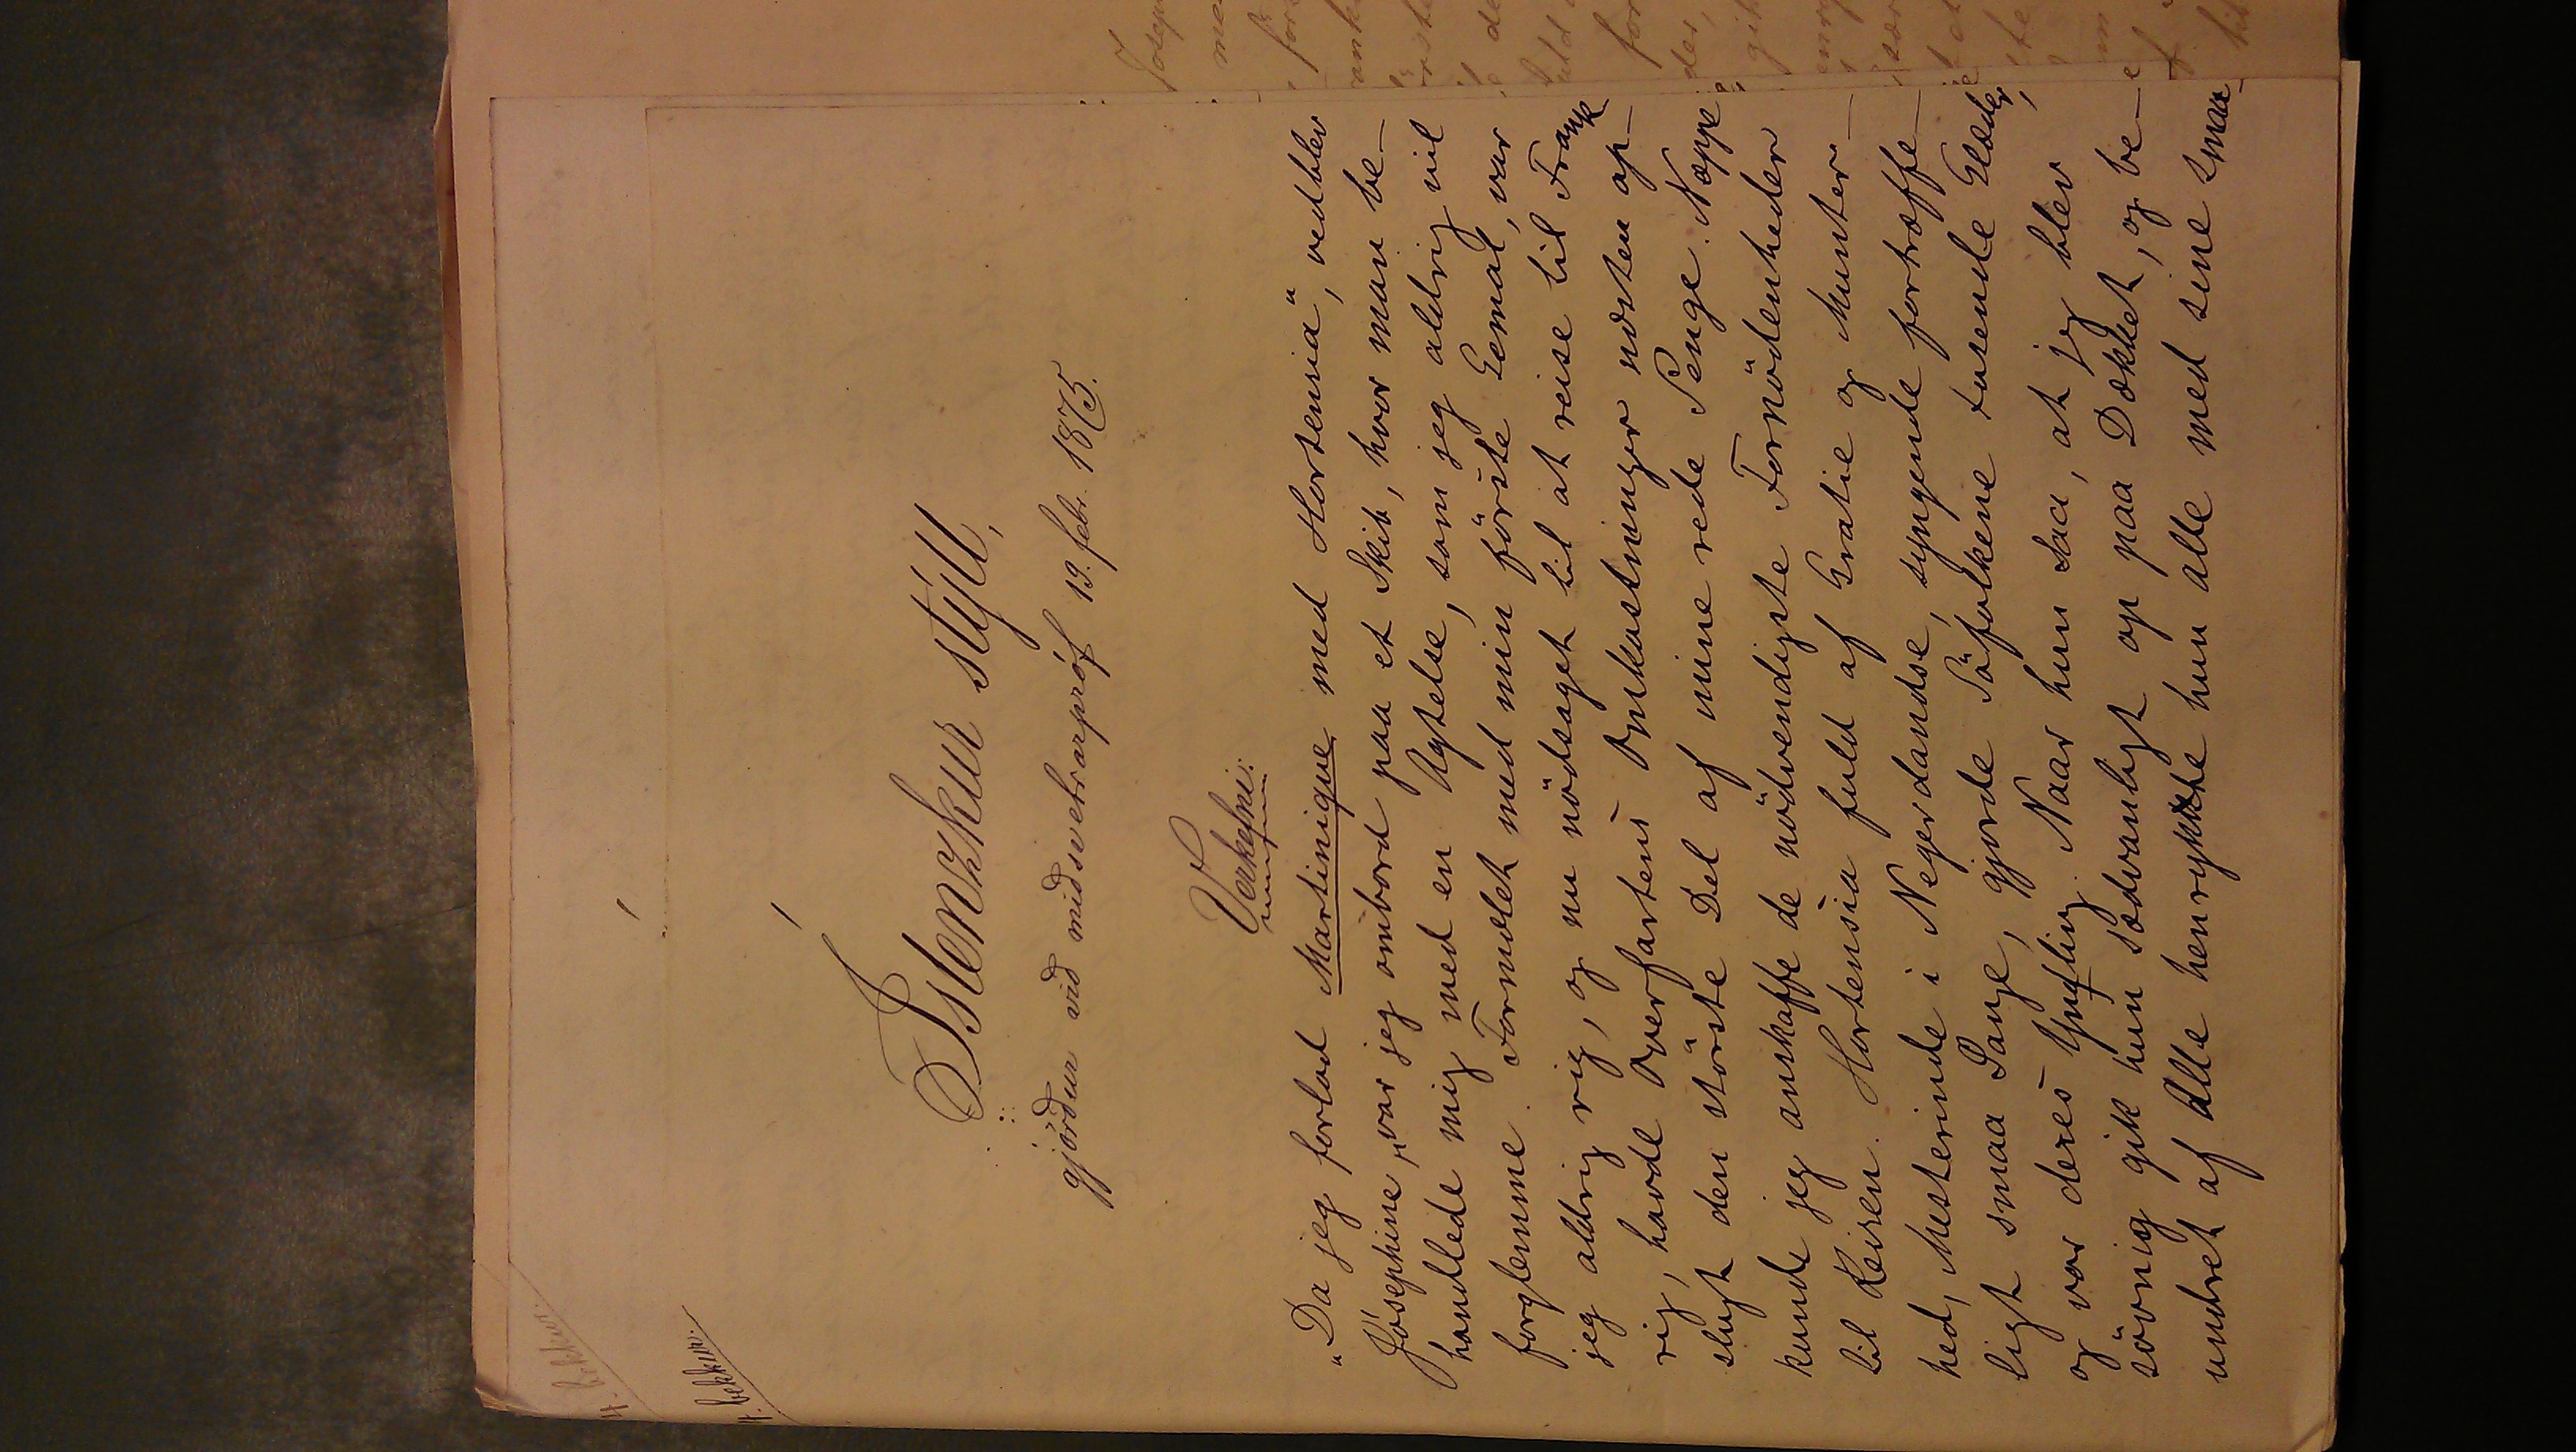 4. bekkur.
4. bekkur.
Íslenzkur stýll,
gjörður við miðsvetrarpróf 19. febr. 1875.
Verkefni:
"Da jeg forlod Martinique med Hortensia", vedblev
Jósephine, "var jeg ombord paa et Skib, hvor man be-
handlede mig med en Agtelse, som jeg aldrig vil
forglemme. Formælet med min förste Gemal, var
jeg aldrig rig, og nu nödsaget til at reise til Frank
rig, havde Overfartens Omkostninger næsten op-
slugt den störste Del af mine rede Penge. Neppe
kunde jeg anskaffe de nödvendigste Fornödenheder
til Reisen. Hortensia fuld af Gratie og Munter-
hed, Mesterinde i Negerdandse, syngende fortræffe-
ligt smaa Sange, gjorde Söfolkene tusende Glæder,
og var deres Yndling. Naar hun saa, at jeg blev
sövnig gik hun sædvanligt op paa Dækket, og be-
undret af Alle henrykkte hun alle med sine smaa